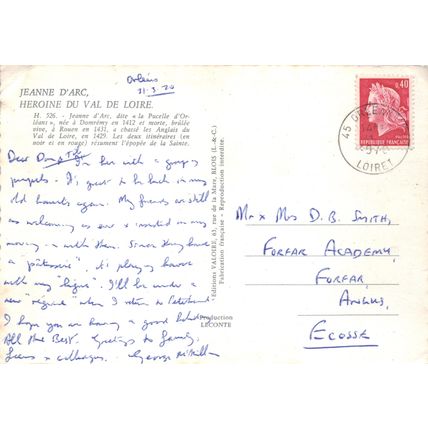 Orléans
31-3-70
JEANNE D'ARC,
HEROINE DU VAL DE LOIRE.
H. 526. - Jeanne d'Arc, dite « la Pucelle d'Or-
léans », née à Domrémy en 1412 et morte, brûlée
vive, à Rouen en 1431, a chassé les Anglais du
Val de Loire, en 1429. Les deux itinéraires (en
noir et en rouge) résument l'épopée de la Sainte.
Dear
I'm here with a group of
pupils. It's great to be back in my
old haunts again. My friends are still
as welcoming as ever & insisted on my
moving in with them. Since they have
a "pâtisserie", it's playing havoc
with my "ligne". I'll be under a
new "régime" when I return to
I hope you are having a good holiday.
All the Best. Greetings to family,
friends & colleagues. George
Editions VALOIRE, 63, rue de la Mare, BLOIS (L.-&-C.)
Fabrication française - Reproduction interdite.
Production
LECONTE
0,40
REPUBLIQUE FRANÇAISE
45 ORLEANS
LOIRET
Mr & Mrs D. B. Smith,
Forfar Academy,
Forfar,
Angus,
Ecosse